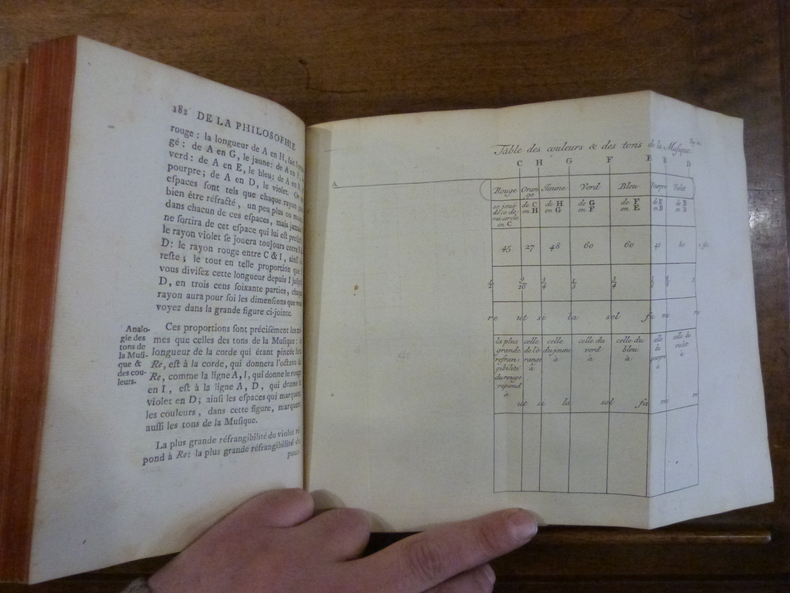 182 DE LA PHILOSOPHIE
rouge ; la longueur de A en H,
gé ; de A en G, le jaune ; de A en
verd : de A en E, le bleu ; de A en
pourpre ; de A en D, le violet. Ces
eſpaces ſont tels que chaque rayon
bien être réfracté, un peu plus ou moins
dans chacun de ces eſpaces, mais jamais
ne ſortira de cet eſpace qui lui eſt preſcrit
le rayon violet ſe jouera toujours entre
D : le rayon rouge entre C & I, ainſi
reſte ; le tout en telle proportion que
vous diviſez cette longueur depuis I juſqu'à
D, en trois cens ſoixante parties, chaque
rayon aura pour ſoi les dimenſions que vous
voyez dans la grande figure ci-jointe.
Analo-
gie des
tons de
la Muſi-
que &
des cou-
leurs.
Ces proportions ſont préciſément les mê-
mes que celles des tons de la Muſique ; la
longueur de la corde qui étant pincée
Re, eſt à la corde, qui donnera l'octave de
Re, comme la ligne A, I, qui donne le rouge
en I, eſt à la ligne A, D, qui donne le
violet en D ; ainſi les eſpaces qui marquent
les couleurs, dans cette figure, marquent
auſſi les tons de la Muſique.
La plus grande réfrangibilité du violet ré-
pond à Re : la plus grande réfrangibilité du
Table des couleurs & des tons de la Muſique.
C H G F E B D
A
Rouge Oran Jaune Verd Bleu Pourpre Violet
de C en H de H en G de G en F de F en E
45 27 48 60 60 40 80
re ut si la sol fa mi
la plus grande refrangibilité du rouge répond à
celle de l'orangé à
celle du jaune à
celle du verd à
celle du bleu à
celle du pourpre à
celle du violet à
ut si la sol fa mi